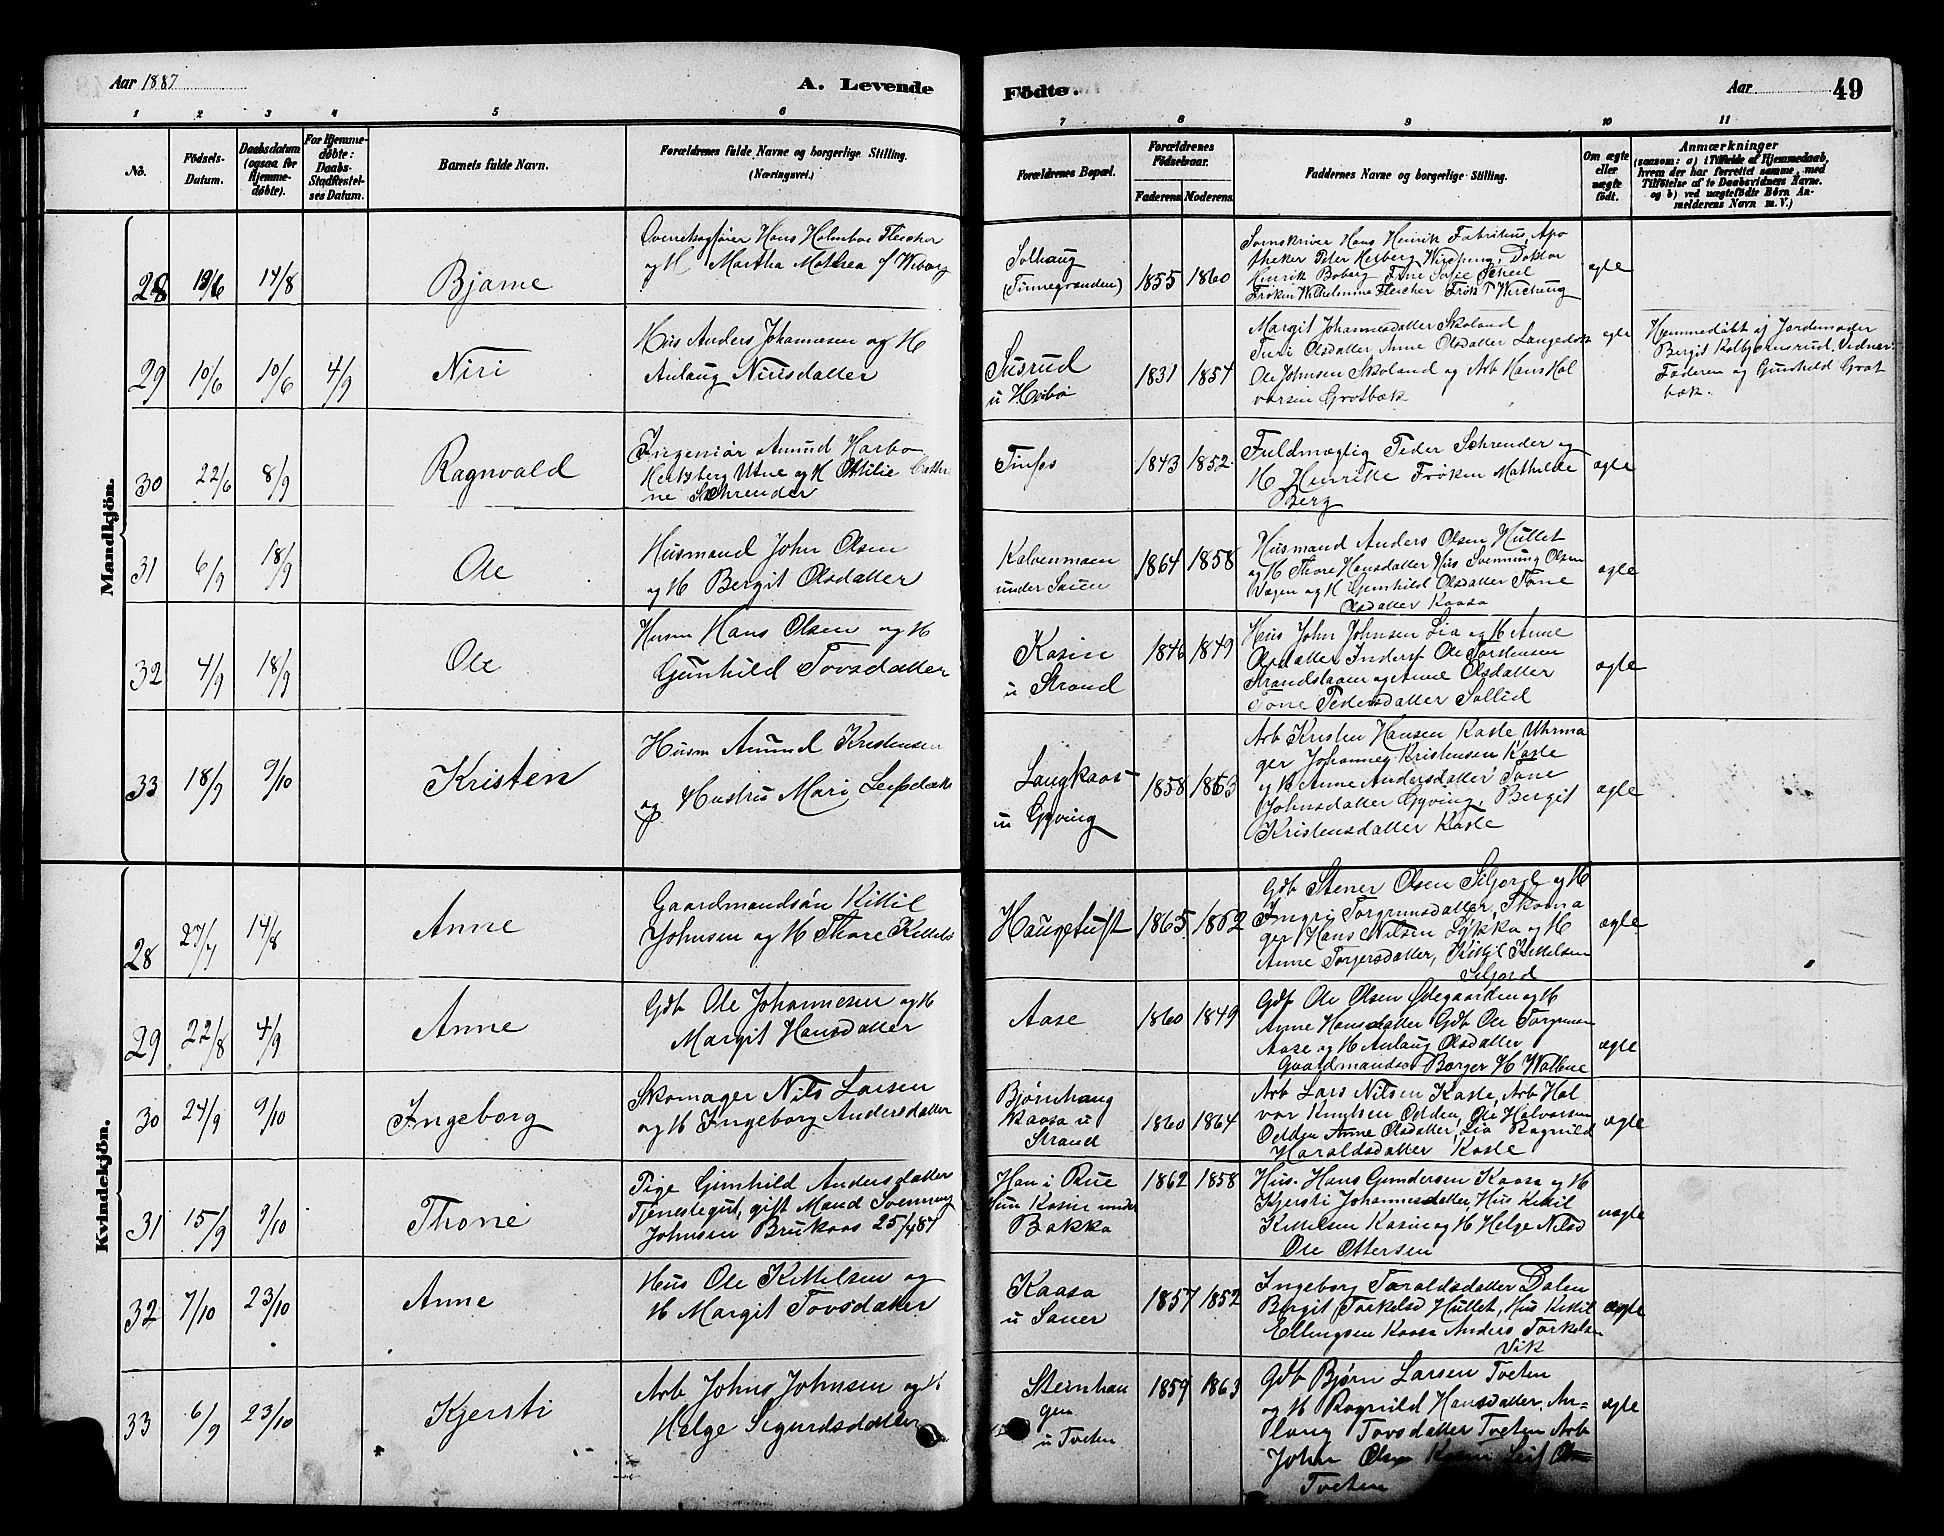 Aar 1887
A. Levende
Födte.
Aar
49
1 2 3 4 5 6 7 8 9 10 11
No.
Födsels-
Datum.
Daabsdatum
(ogsaa for
Hjemme-
døbte).
For Hjemme-
døbte:
Daabs-
Stadfæstel-
ses Datum.
Barnets fulde Navn.
Forældrenes fulde Navne og borgerlige Stilling.
(Næringsvei.)
Forældrenes Bopæl.
Forældrenes
Födselsaar.
Faderens. Moderens.
Faddernes Navne og borgerlige Stilling.
Om ægte
eller
uægte
födt.
Anmærkninger
(saasom: a) i Tilfælde af Hjemmedaab,
hvem der har forrettet samme, med
Tilföielse af to Daabsvidners Navne,
og b) ved uægtefödte Börn An-
melderens Navn m. V.)
Mandkjön.
28 13/6 14/8
Bjarne
Overretssagfører Hans Holmboe Fleischer
og H Martha Mathea f Wiborg
Solhaug
(Tinnegranden)
1855 1860
Sorenskriver Hans Henrik Fabritius, Apo
theker Peter Herberg Wirching, Doktor
Henrik Boberg Frue Sofie Scheel
Frøken Wilhelmine Fleicher Frøk T Wirching
ægte
29 10/6 10/6 4/9
Niri
Hus Anders Johannesen og H
Anlaug Nirisdatter
Susrud
u Heibø
1831 1854
Margit Johannesdatter Skoland
Turi Olsdatter, Anne Olsdatter Langedok
Ole Johnsen Skoland og Arb Hans Hal
vorsen Grotbæk
ægte
Hjemmedøbt af Jordemoder
Bergit Kolbjørnsrud. Vidner
Faderen og Gunhild Grot
bæk.
30 22/6 8/9
Ragnvald
Ingeniør Amund Harbo
Hertzberg Utne og H Ottilie Cathri
ne Schrender
Tinfos
1843 1852
Fuldmægtig Peder Schrender og
H Henrikke Frøken Mathilde
Berg
ægte
31 6/9 18/9
Ole
Husmand John Olsen
og H Bergit Olsdatter
Kalvenmoen
under Sauer
1864 1858
Husmand Anders Olsen Hullet
og H Thore Hansdatter Hus Svennung Olsen
Vaagen og H Gunhild Olsdatter Tone
Olsdatter Kaasa
ægte
32 4/9 18/9
Ole
Husm Hans Olsen og H
Gunhild Tovsdatter
Kasin
u Strand
1846 1849
Hus John Johnsen Lia og H Anne
Olsdatter Inderst Ole Torstensen
Strandstaaen og Anne Olsdatter
Tone Pedersdatter Sollid
ægte
33 18/9 9/10
Kristen
Husm Amund Kristensen
og Hustru Mari Leifsdatte
Langkaas
u Gyving
1858 1863
Arb Kristen Hansen Kaste, Uhrma
ger Johannes Kristensen Kaste
og H Anne Andersdatter Tone
Johnsdatter Gyving, Bergit
Kristensdatter Kaste
ægte
Kvindekjön.
28 27/7 14/8
Anne
Gaardmandsøn Kittil
Johnsen og H Thore Kittils
Haugetuft
1865 1862
Gdb Stener Olsen Siljord og H
Ingri Torgrimsdatter, Skoma
ger Hans Nilsen Lykka og H
Anne Torgersdatter, Kittil Kittilsen
Siljord
ægte
29 22/8 4/9
Anne
Gdb Ole Johannesen og H
Margit Hansdatter
Aase
1860 1849
Gdb Ole Olsen Ødegaarden og H
Anne Hansdatter Gdb Ole Torgrimsen
Aase og H Anlaug Olsdatter
Gaardmandsøn Borger H Walbue
ægte
30 24/9 9/10
Ingeborg
Skomager Nils Larsen
og H Ingeborg Andersdatter
Bjørnhaug
Kaasa u
Strand
1860 1864
Arb Lars Nilsen Kaste, Arb Hal
vor Knutsen Odden, Ole Halvorsen
Odden Anne Olsdatter, Lia Ragnild
Haraldsdatter Kaste
ægte
31 15/9 9/10
Thone
Pige Gunhild Andersdatter
Tjenestegut, gift Mand Svennung
Johnsen Brukaas 25/4 87
Han i Rue
Hun Kasin under
Bakka
1862 1858
Hus. Hans Gundersen Kaasa og H
Kjersti Johannesdatter, Hus Kittil
Kittilsen Kasin og H Helge Nilsd
Ole Ottersen
uægte
32 7/10 23/10
Anne
Hus Ole Kittilsen og
H Margit Tovsdatter
Kaasa
u Sauer
1857 1852
Ingeborg Taraldsdatter Dalen
Bergit Torkelsd Hullet, Hus Kittil
Ellingsen Kaasa Anders Torkelsen
Vik
ægte
33 6/9 23/10
Kjersti
Arb Johns Johnsen og H
Helge Sigurdsdatter
Steinhau
gen
u Tveten
1859 1863
Gdb Bjørn Larsen Tveten
og H Ragnild Hansdatter, An-
laug Tovsdatter Tveten Arb
John Olsen Kasin Leif
Tveten
ægte